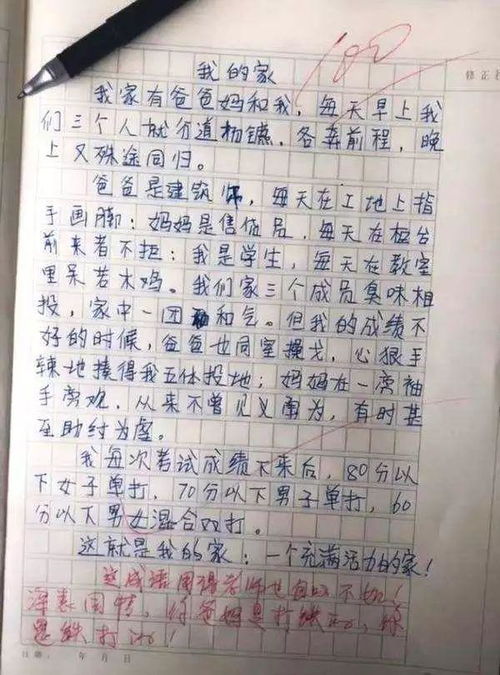 100
修正
我的家
我家有爸爸妈和我，每天早上我
们三个人就分道杨镳，各奔前程，晚
上又殊途同归。
爸爸是建筑师，每天在工地上指
手画脚；妈妈是售货员，每天在柜台
前来者不拒；我是学生，每天在教室
里呆若木鸡。我们家三个成员臭味相
投，家中一团和气。但我的成绩不
好的时候，爸爸也同室操戈，心狠手
辣地揍得我五体投地；妈妈在一旁袖
手旁观，从来不曾见义勇为，有时甚
至助纣为虐。
我每次考试成绩下来后，80分以
下女子单打，70分以下男子单打，60
分以下男女混合双打。
这就是我的家：一个充满活力的家！
这成语用得老师也自叹不如！
深表同情，你爸妈是打铁的，你
是铁打的！
日期： 年 月 日